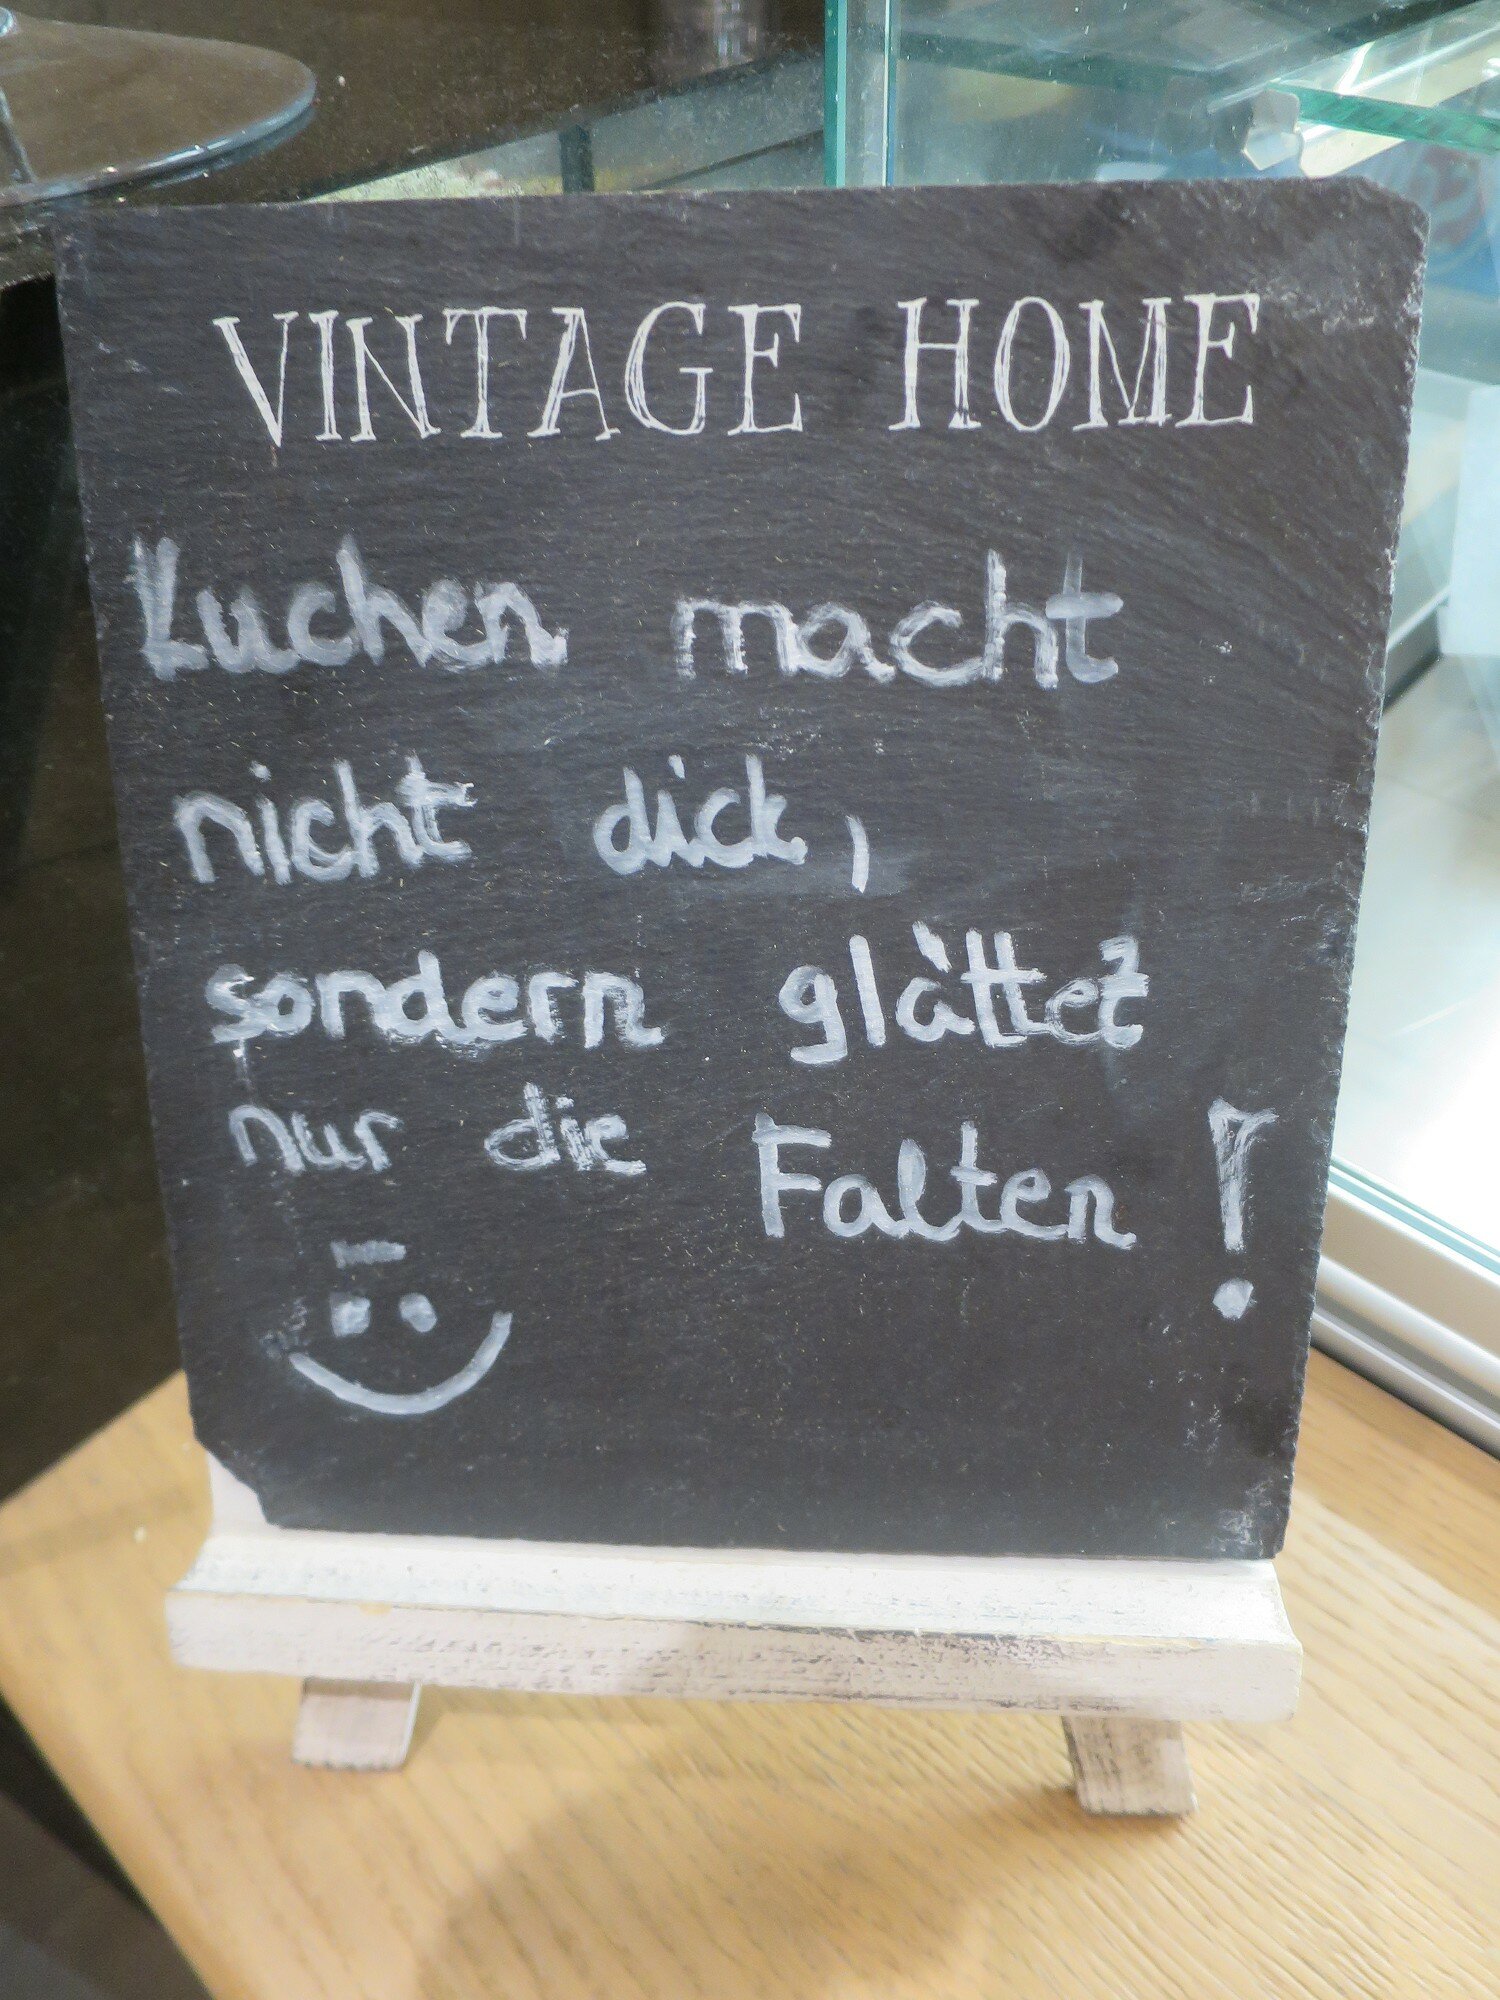 VINTAGE HOME
Kuchen macht
nicht dick,
sondern glättet
nur die Falten!